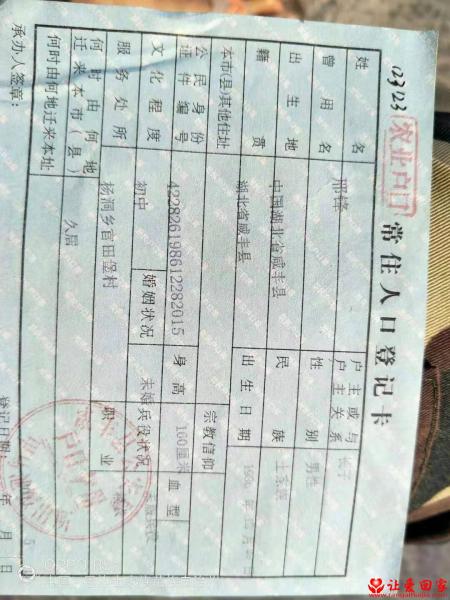 农业户口
常住人口登记卡
姓名 邢锋 户主或与户主关系 长子
曾用名 性别 男性
出生地 中国湖北省咸丰县 民族 土家族
籍贯 湖北省咸丰县 出生日期
本市(县)其他住址 宗教信仰
公民身份证件编号 422826198612282015 身高 160厘米 血型
文化程度 初中 婚姻状况 未婚 兵役状况
服务处所 杨洞乡官田堡村 职业
何时由何地迁来本市(县) 久居
何时由何地迁来本址
承办人签章: 登记日期: 年 月 日
让爱回家